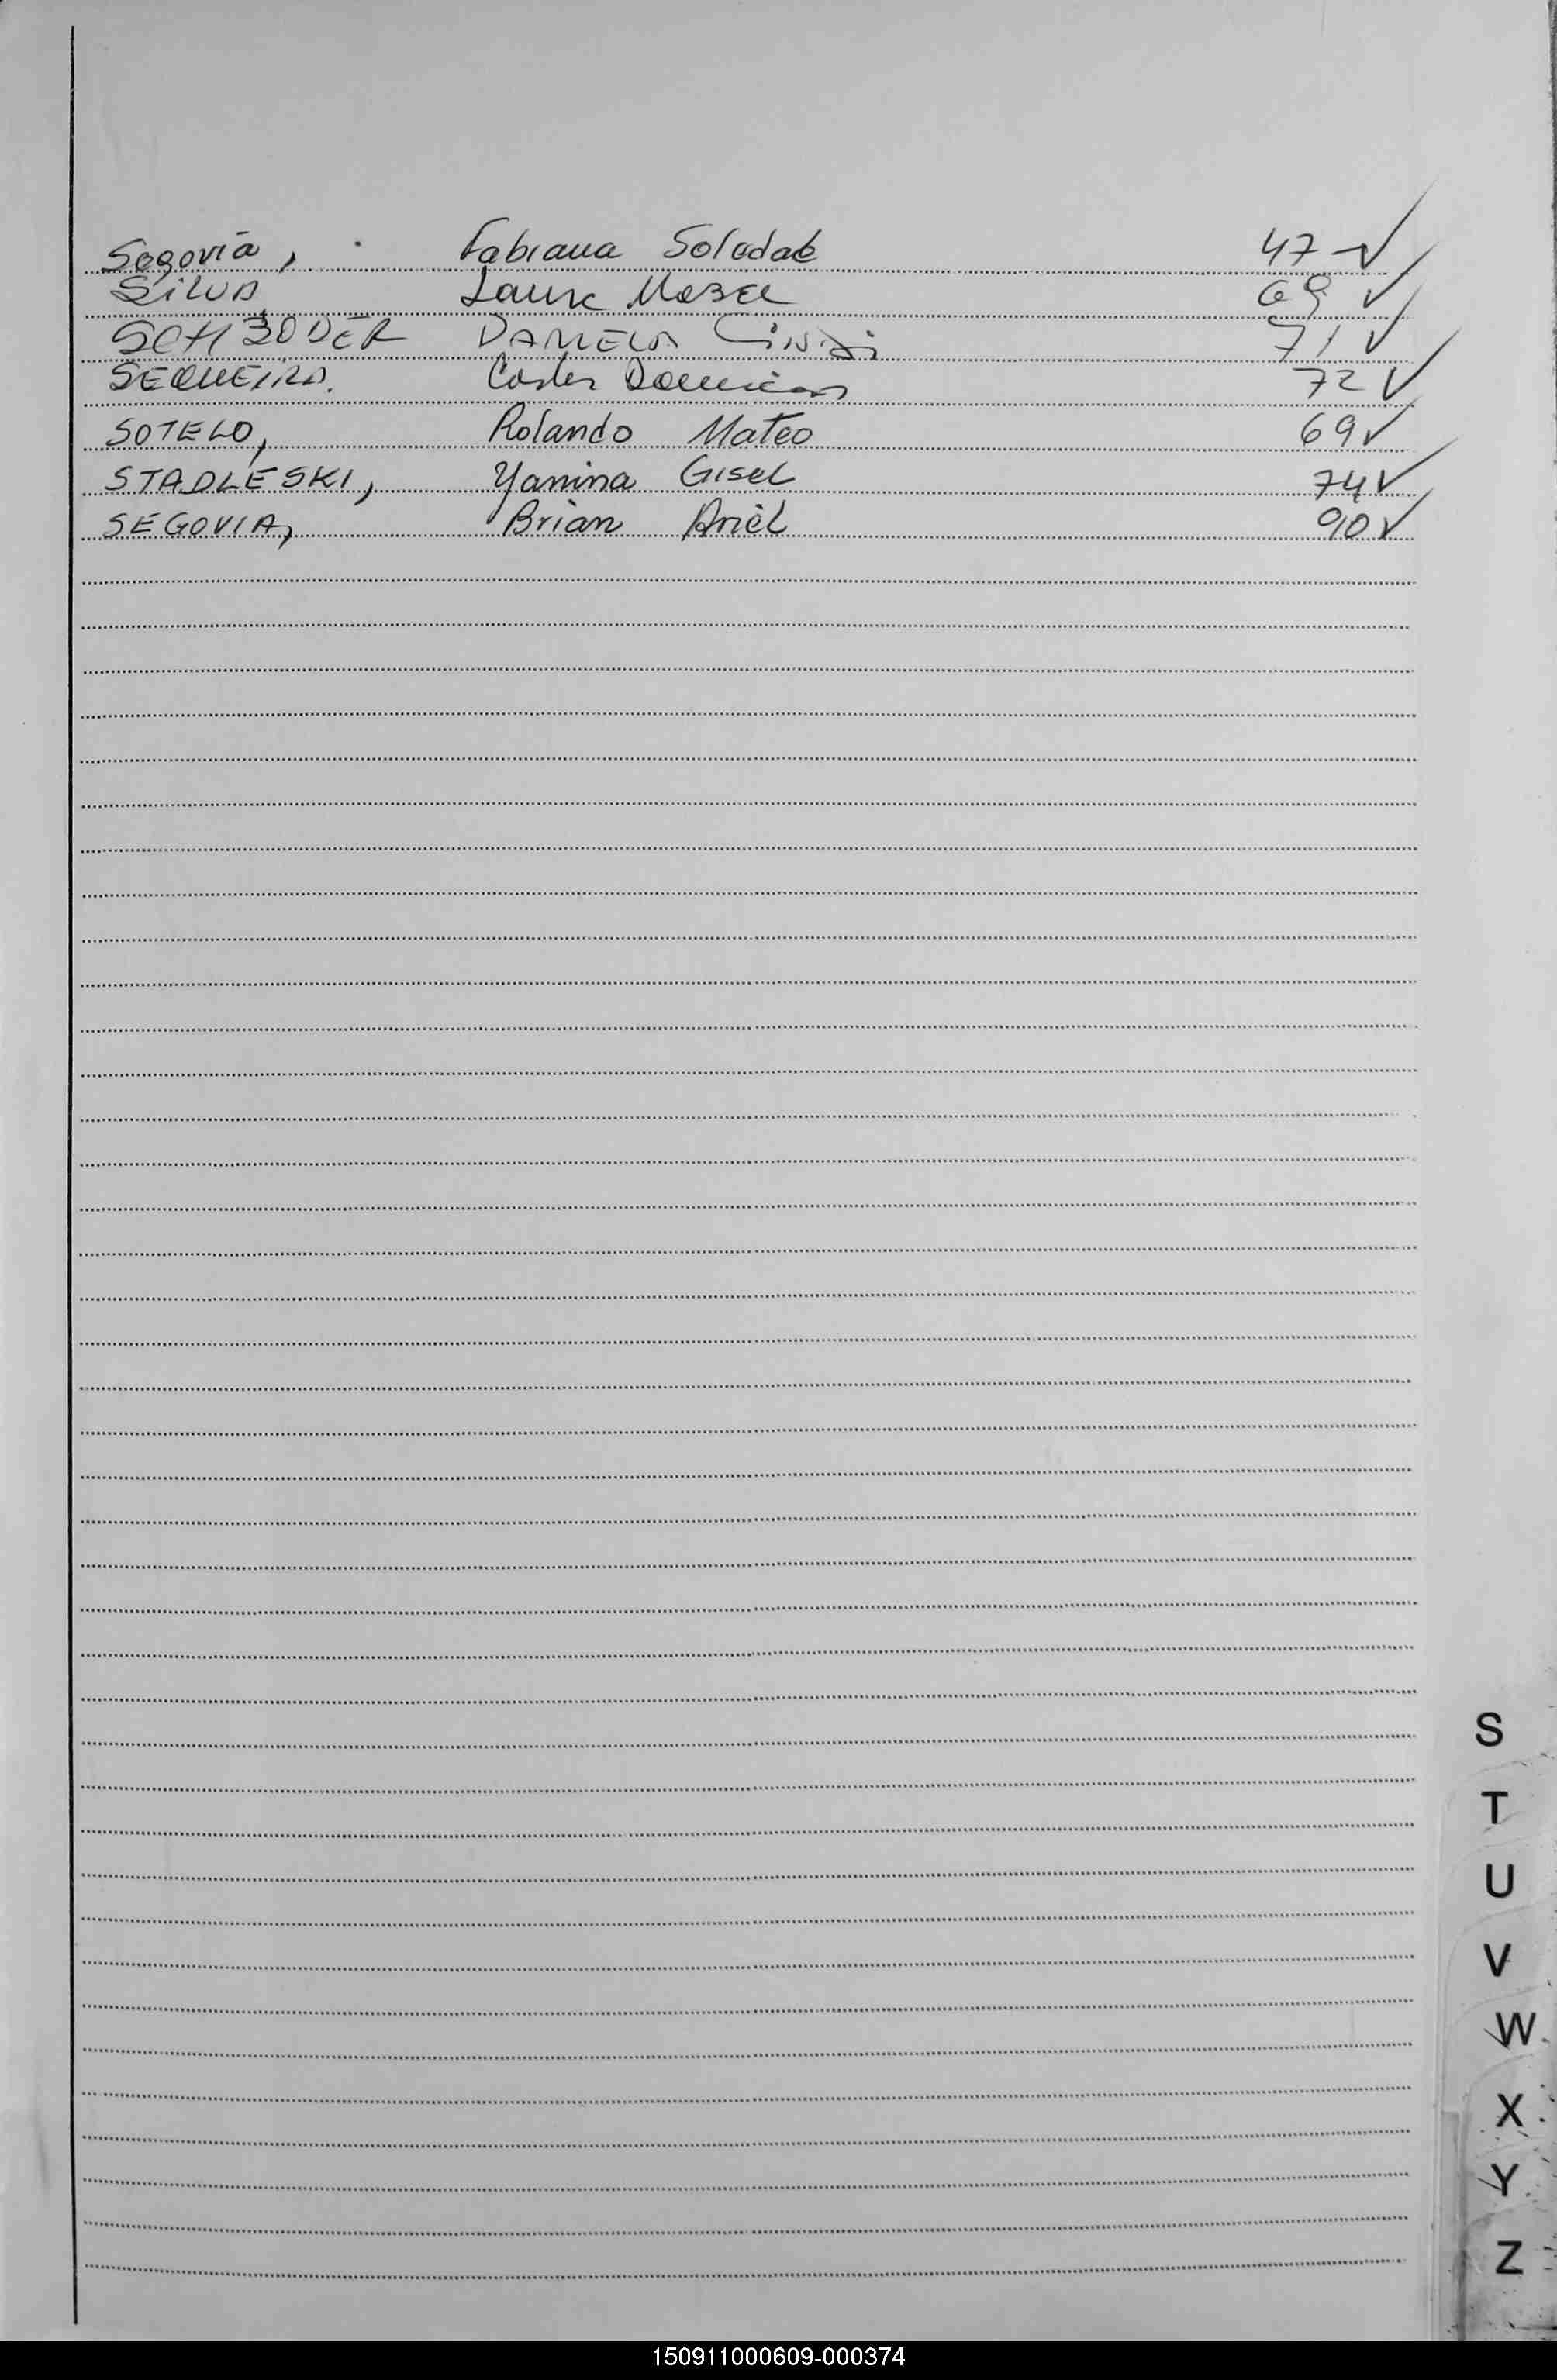 Segovia, Fabiana Soledad 47 ✓
SILVA Laura 69 ✓
DANIELA 71 ✓
SEQUEIRA. Carlos 72 ✓
SOTELO, Rolando Mateo 69 ✓
STADLESKI, Yanina Gisel 74 ✓
SEGOVIA, Brian Ariel 90 ✓
S
T
U
V
W
X
Y
Z
150911000609-000374